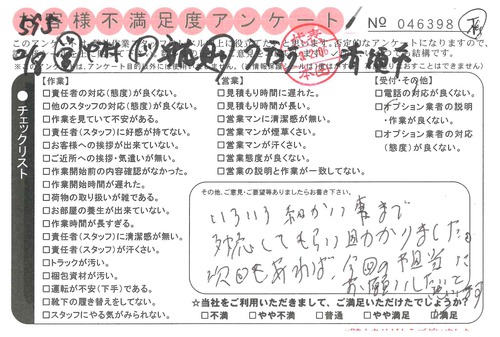 お客様不満足度アンケート
No 046398
チェックリスト
【作業】
□責任者の対応(態度)が良くない。
□他のスタッフの対応(態度)が良くない。
□作業を見ていて不安がある。
□責任者(スタッフ)に好感が持てない。
□お客様への挨拶が出来ていない。
□ご近所への挨拶・気遣いが無い。
□作業開始前の内容確認がなかった。
□作業開始時間が遅れた。
□荷物の取り扱いが雑である。
□お部屋の養生が出来ていない。
□作業時間が長すぎる。
□責任者(スタッフ)に清潔感が無い。
□責任者(スタッフ)が汗くさい。
□トラックが汚い。
□梱包資材が汚い。
□運転が不安(下手)である。
□靴下の履き替えをしていない。
□スタッフにやる気がみられない。
【営業】
□見積もり時間に遅れた。
□見積もり時間が長い。
□営業マンに清潔感が無い。
□営業マンが煙草くさい。
□営業マンが汗くさい。
□営業態度が良くない。
□営業の説明と作業が一致してない。
【受付・その他】
□電話の対応が良くない。
□オプション業者の説明
・作業が良くない。
□オプション業者の対応
(態度)が良くない。
その他、ご意見・ご要望等ありましたらお書き下さい。
いろいろ細かい事まで
対応してもらい助かりました。
次回もあれば、今回の担当に
お願いしたいと思います
☆当社をご利用いただきまして、ご満足いただけたでしょうか?
□不満 □やや不満 □普通 □やや満足 □満足